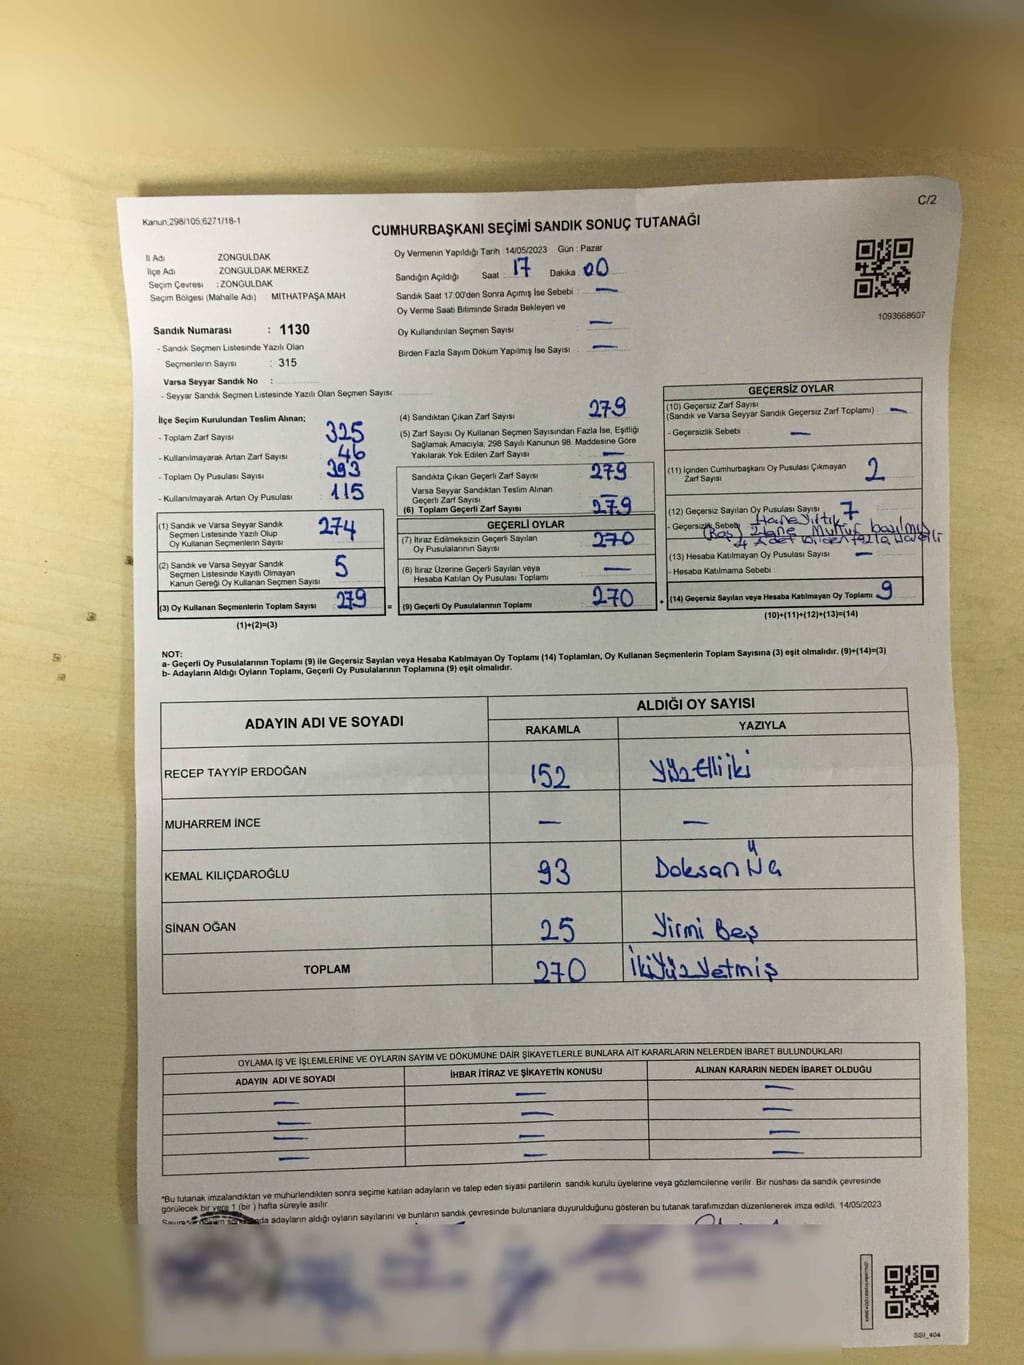 Kanun,298/105,6271/18-1
C/2
CUMHURBAŞKANI SEÇİMİ SANDIK SONUÇ TUTANAĞI
İl Adı ZONGULDAK
İlçe Adı ZONGULDAK MERKEZ
Seçim Çevresi : ZONGULDAK
Seçim Bölgesi (Mahalle Adı) MİTHATPAŞA MAH
Sandık Numarası : 1130
- Sandık Seçmen Listesinde Yazılı Olan
Seçmenlerin Sayısı : 315
Varsa Seyyar Sandık No :
- Seyyar Sandık Seçmen Listesinde Yazılı Olan Seçmen Sayısı
Oy Vermenin Yapıldığı Tarih : 14/05/2023 Gün : Pazar
Sandığın Açıldığı Saat 17 Dakika 00
Sandık Saat 17:00'den Sonra Açımış İse Sebebi : —
Oy Verme Saati Bitiminde Sırada Bekleyen ve
Oy Kullandırılan Seçmen Sayısı —
Birden Fazla Sayım Döküm Yapılmış İse Sayısı : —
1093668607
İlçe Seçim Kurulundan Teslim Alınan;
- Toplam Zarf Sayısı 325
- Kullanılmayarak Artan Zarf Sayısı 46
- Toplam Oy Pusulası Sayısı 393
- Kullanılmayarak Artan Oy Pusulası 115
(1) Sandık ve Varsa Seyyar Sandık
Seçmen Listesinde Yazılı Olup
Oy Kullanan Seçmenlerin Sayısı 274
(2) Sandık ve Varsa Seyyar Sandık
Seçmen Listesinde Kayıtlı Olmayan
Kanun Gereği Oy Kullanan Seçmen Sayısı 5
(3) Oy Kullanan Seçmenlerin Toplam Sayısı 279
(1)+(2)=(3)
(4) Sandıktan Çıkan Zarf Sayısı 279
(5) Zarf Sayısı Oy Kullanan Seçmen Sayısından Fazla İse, Eşitliği
Sağlamak Amacıyla, 298 Sayılı Kanunun 98. Maddesine Göre
Yakılarak Yok Edilen Zarf Sayısı —
Sandıkta Çıkan Geçerli Zarf Sayısı 279
Varsa Seyyar Sandıktan Teslim Alınan
Geçerli Zarf Sayısı
(6) Toplam Geçerli Zarf Sayısı 279
GEÇERLİ OYLAR
(7) İtiraz Edilmeksizin Geçerli Sayılan
Oy Pusulalarının Sayısı 270
(8) İtiraz Üzerine Geçerli Sayılan veya
Hesaba Katılan Oy Pusulası Toplamı —
= (9) Geçerli Oy Pusulalarının Toplamı 270
GEÇERSİZ OYLAR
(10) Geçersiz Zarf Sayısı
(Sandık ve Varsa Seyyar Sandık Geçersiz Zarf Toplamı) —
- Geçersizlik Sebebi —
(11) İçinden Cumhurbaşkanı Oy Pusulası Çıkmayan
Zarf Sayısı 2
(12) Geçersiz Sayılan Oy Pusulası Sayısı 7
- Geçersizlik Sebebi
(Boş) 2 tane Mühür basılmış
(13) Hesaba Katılmayan Oy Pusulası Sayısı —
- Hesaba Katılmama Sebebi
+ (14) Geçersiz Sayılan veya Hesaba Katılmayan Oy Toplamı 9
(10)+(11)+(12)+(13)=(14)
NOT:
a- Geçerli Oy Pusulalarının Toplamı (9) ile Geçersiz Sayılan veya Hesaba Katılmayan Oy Toplamı (14) Toplamları, Oy Kullanan Seçmenlerin Toplam Sayısına (3) eşit olmalıdır. (9)+(14)=(3)
b- Adayların Aldığı Oyların Toplamı, Geçerli Oy Pusulalarının Toplamına (9) eşit olmalıdır.
ADAYIN ADI VE SOYADI
ALDIĞI OY SAYISI
RAKAMLA YAZIYLA
RECEP TAYYİP ERDOĞAN 152 Yüz Elli iki
MUHARREM İNCE — —
KEMAL KILIÇDAROĞLU 93 Doksan Üç
SİNAN OĞAN 25 Yirmi Beş
TOPLAM 270 İkiYüz Yetmiş
OYLAMA İŞ VE İŞLEMLERİNE VE OYLARIN SAYIM VE DÖKÜMÜNE DAİR ŞİKAYETLERLE BUNLARA AİT KARARLARIN NELERDEN İBARET BULUNDUKLARI
ADAYIN ADI VE SOYADI İHBAR İTİRAZ VE ŞİKAYETİN KONUSU ALINAN KARARIN NEDEN İBARET OLDUĞU
— — —
— — —
— — —
— — —
*Bu tutanak imzalandıktan ve mühürlendikten sonra seçime katılan adayların ve talep eden siyasi partilerin sandık kurulu üyelerine veya gözlemcilerine verilir. Bir nüshası da sandık çevresinde
görülecek bir yere 1 (bir) hafta süreyle asılır.
adayların aldığı oyların sayılarını ve bunların sandık çevresinde bulunanlara duyurulduğunu gösteren bu tutanak tarafımızdan düzenlenerek imza edildi. 14/05/2023
SSI_404